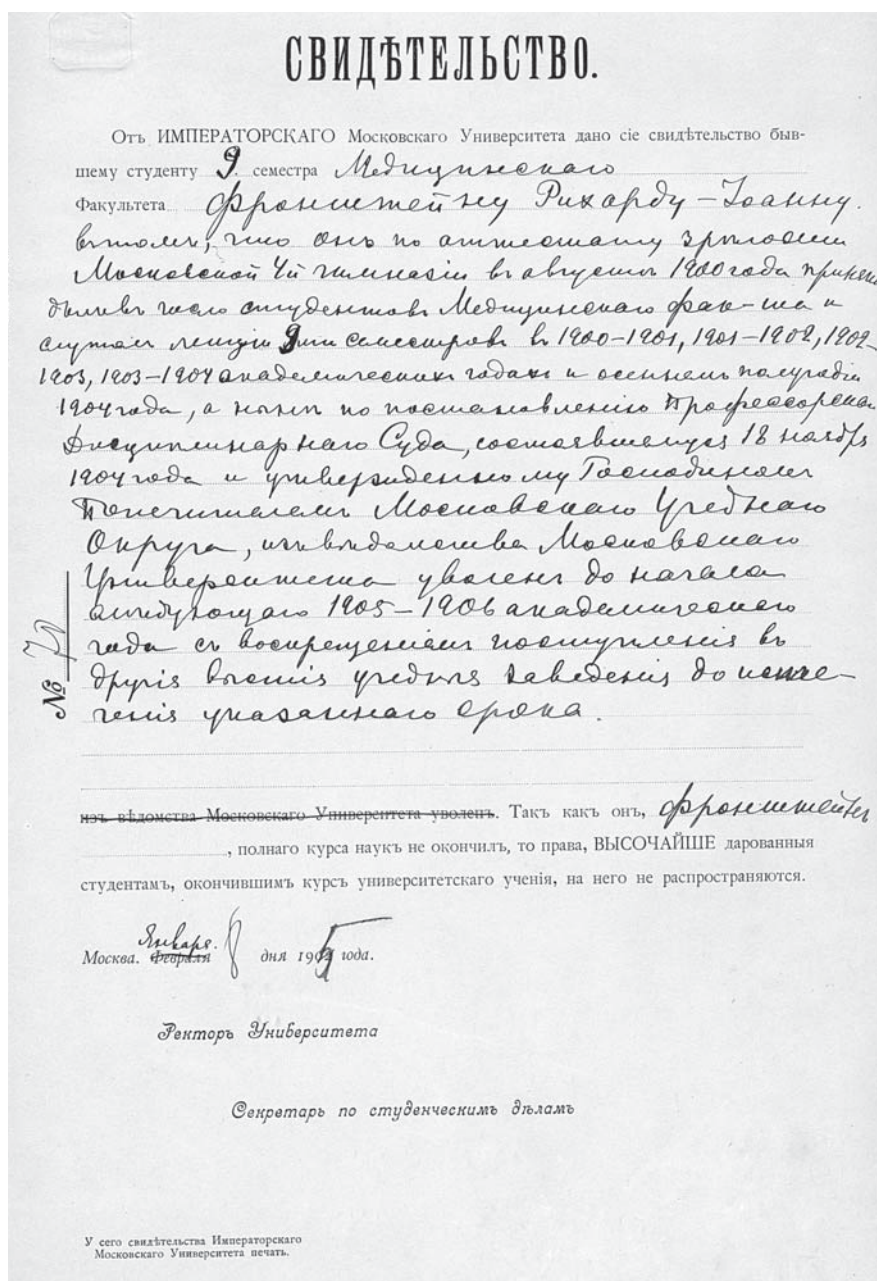 СВИДѢТЕЛЬСТВО.
Отъ ИМПЕРАТОРСКАГО Московскаго Университета дано сіе свидѣтельство быв-
шему студенту 9. семестра Медицинскаго
Факультета Фронштейну Рихарду-Іоанну.
въ томъ, что онъ по аттестату зрѣлости
Московской 4й гимназіи въ августѣ 1900 года принятъ
былъ въ число студентовъ Медицинскаго фак-та и
слушалъ лекціи 9ти семестровъ въ 1900-1901, 1901-1902, 1902-
1903, 1903-1904 академическихъ годахъ и осеннемъ полугодіи
1904 года, а нынѣ по постановленію Профессорскаго
Дисциплинарнаго Суда, состоявшемуся 18 ноября
1904 года и утвержденному Господиномъ
Попечителемъ Московскаго Учебнаго
Округа, изъ вѣдомства Московскаго
Университета уволенъ до начала
1905-1906 академическаго
года съ воспрещеніемъ поступленія въ
другія высшія учебныя заведенія до исте-
ченія указаннаго срока.
№ 70
изъ вѣдомства Московскаго Университета уволенъ. Такъ какъ онъ, Фронштейнъ
, полнаго курса наукъ не окончилъ, то права, ВЫСОЧАЙШЕ дарованныя
студентамъ, окончившимъ курсъ университетскаго ученія, на него не распространяются.
Января.
Москва. Февраля 8 дня 1905 года.
Ректоръ Университета
Секретарь по студенческимъ дѣламъ
У сего свидѣтельства Императорскаго
Московскаго Университета печать.